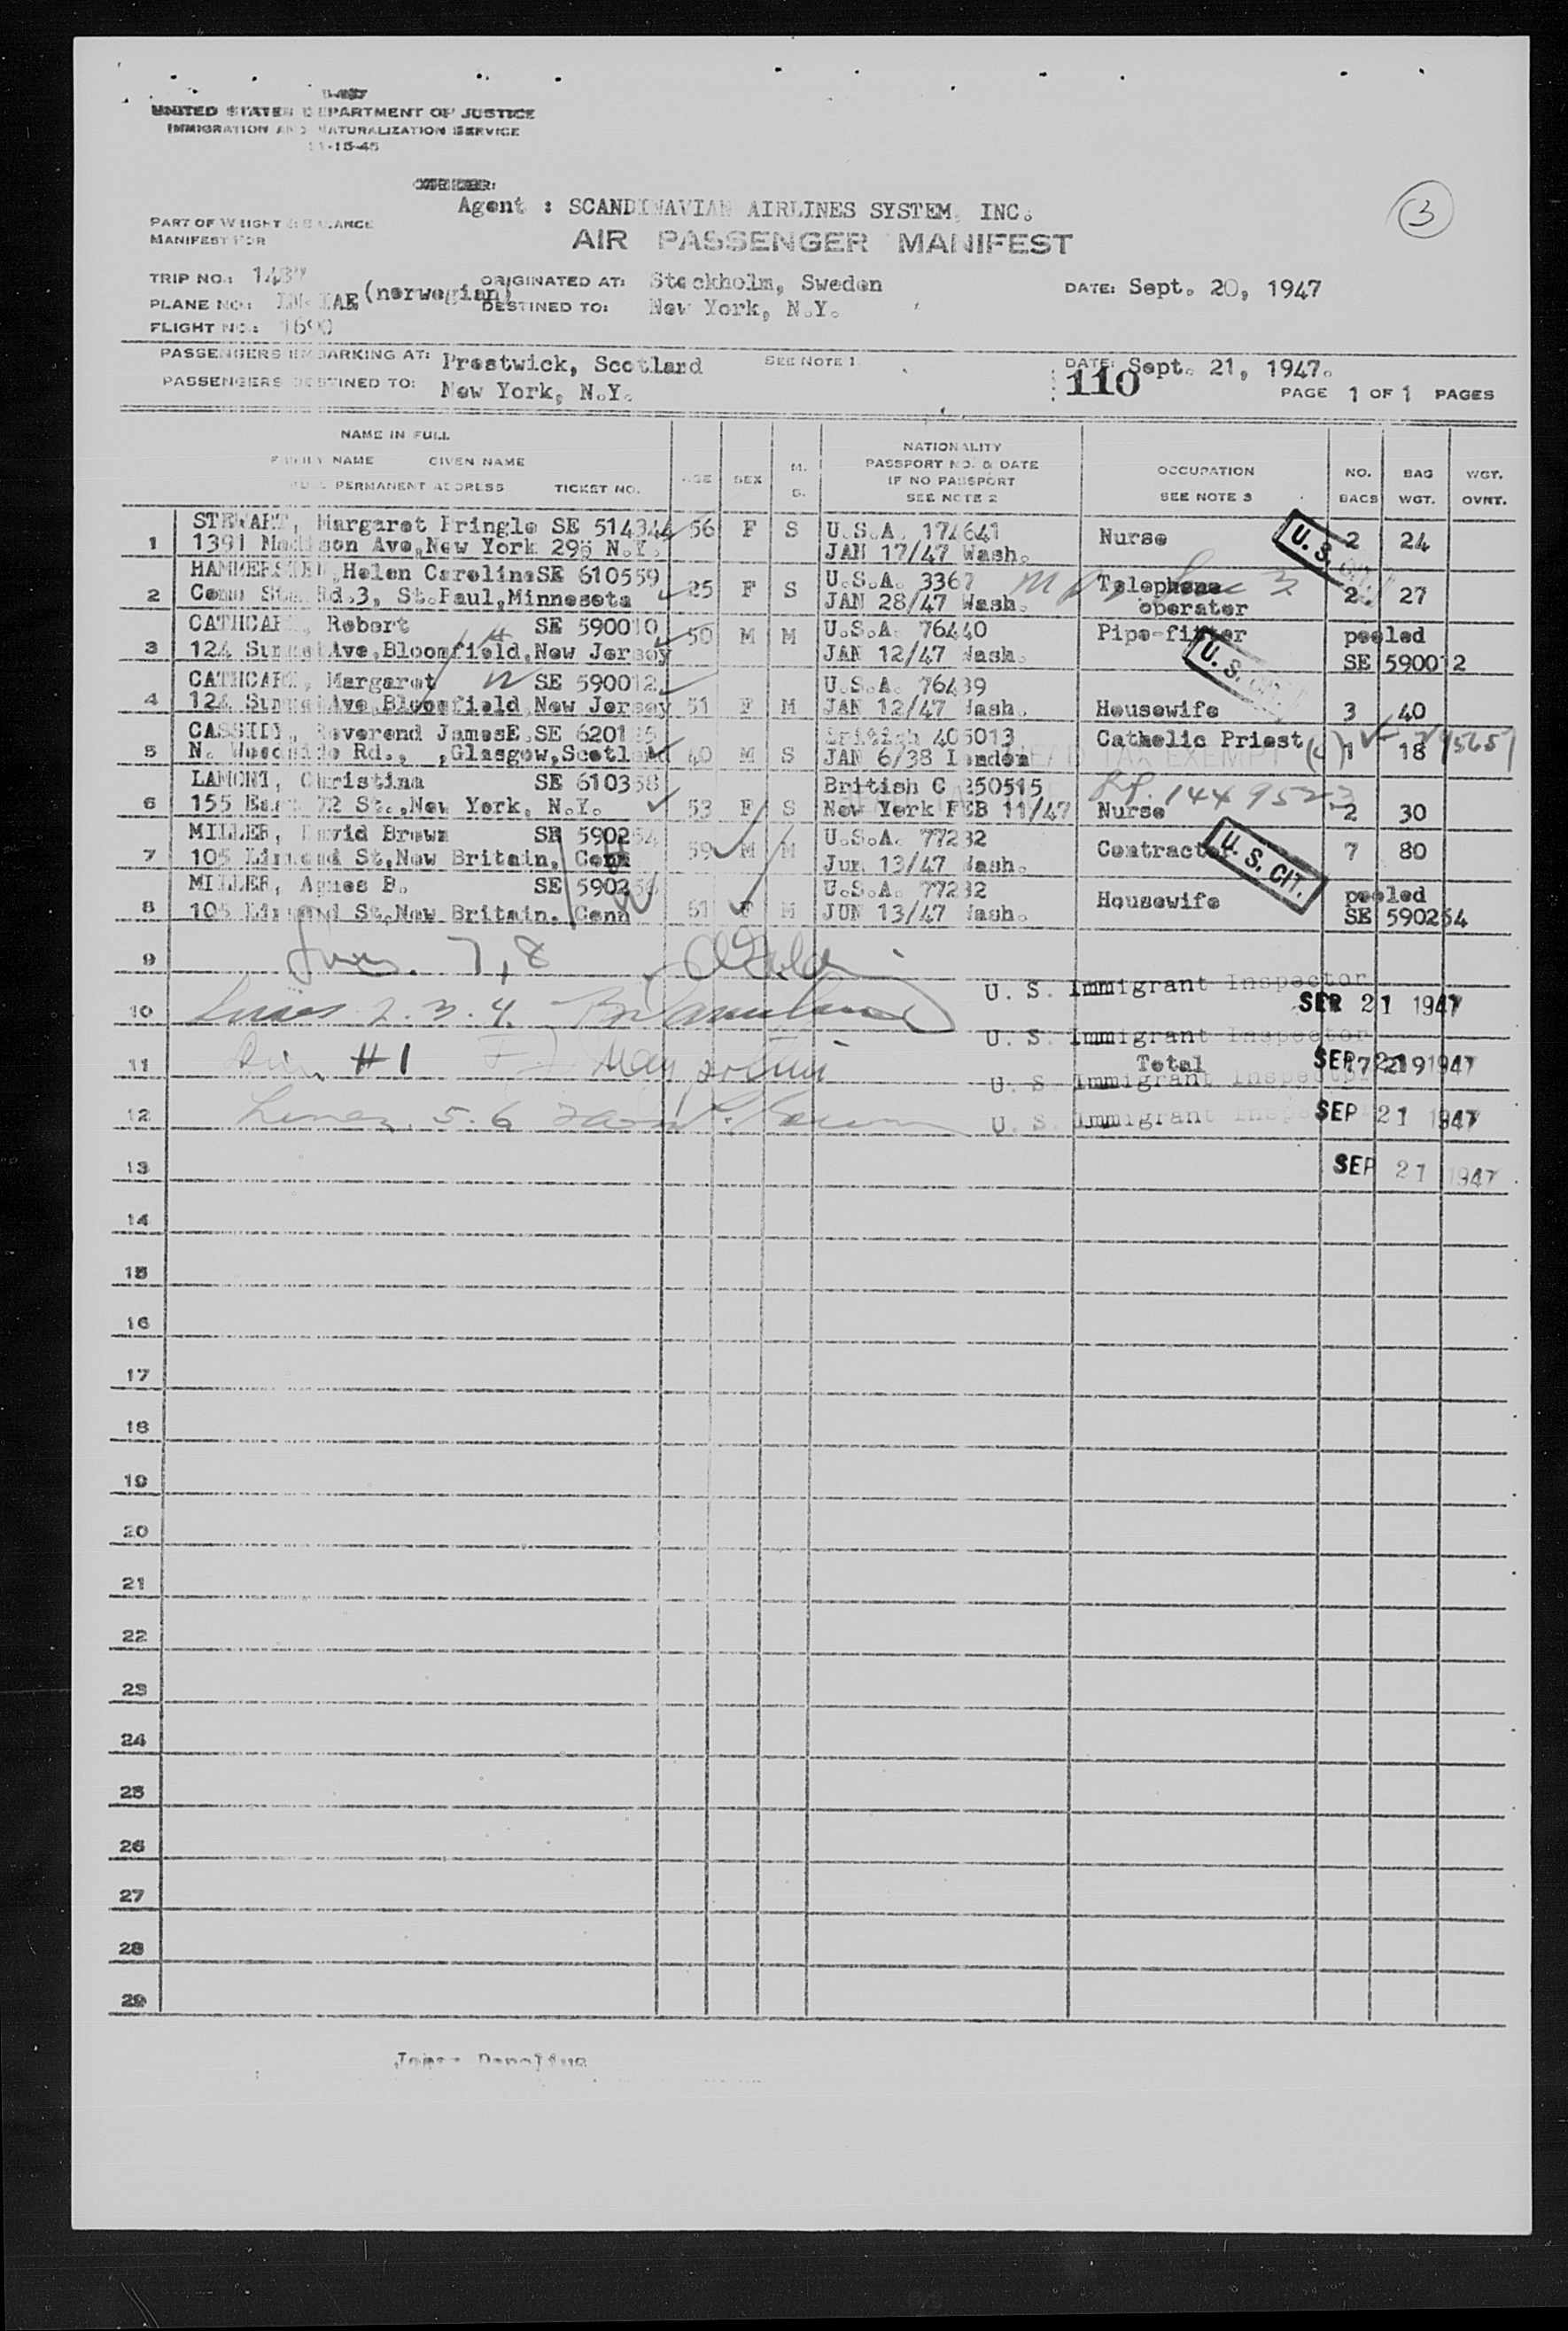 UNITED STATES DEPARTMENT OF JUSTICE
IMMIGRATION AND NATURALIZATION SERVICE
11-15-45
Agent : SCANDINAVIAN AIRLINES SYSTEM, INC.
3
PART OF WEIGHT & BALANCE
MANIFEST FOR
AIR PASSENGER MANIFEST
TRIP NO.: 1487 ORIGINATED AT: Stockholm, Sweden DATE: Sept. 20, 1947
PLANE NO.: (norwegian) DESTINED TO: New York, N.Y.
FLIGHT NO.: 1690
PASSENGERS EMBARKING AT: Prestwick, Scotland SEE NOTE 1 DATE: Sept. 21, 1947.
PASSENGERS DESTINED TO: New York, N.Y. 110 PAGE 1 OF 1 PAGES
NAME IN FULL
FAMILY NAME GIVEN NAME
FULL PERMANENT ADDRESS TICKET NO.
AGE SEX M. S.
NATIONALITY
PASSPORT NO. & DATE
IF NO PASSPORT
SEE NOTE 2
OCCUPATION
SEE NOTE 3
NO. BAGS
BAG WGT.
WGT. OVRT.
STEWART, Margaret Pringle SE 514344 U.S.A. 174641
1 1391 Madison Ave, New York 29, N.Y. 56 F S JAN 17/47 Wash. Nurse 2 24
U.S. CIT.
Helen Caroline SE 610559 U.S.A. 3367 Telephone
2 Como Sta. Rd.3, St.Paul, Minnesota 25 F S JAN 28/47 Wash. operator 2 27
CATHCART, Robert SE 590010 U.S.A. 76440 Pipe-fitter pooled
3 124 Ave, Bloomfield, New Jersey 50 M M JAN 12/47 Wash. SE 590012
U.S. CIT.
CATHCART, Margaret SE 590012 U.S.A. 76439
4 124 Ave, Bloomfield, New Jersey 51 F M JAN 12/47 Wash. Housewife 3 40
CASSIDY, Reverend James E. SE British 405013 Catholic Priest
5 N. Woodside Rd., ,Glasgow, Scotland 40 M S JAN 6/38 London 1 18
HEAD TAX EXEMPT
LAMONT, Christina SE 610358 British C 250515
6 155 East 72 St., New York, N.Y. 53 F S New York FEB 11/47 Nurse 2 30
MILLER, David Brown SE 590254 U.S.A. 77232
7 105 St, New Britain, Conn 59 M M Jun 13/47 Wash. Contractor 7 80
U.S. CIT.
MILLER, Agnes B. SE U.S.A. 77232 pooled
8 105 St, New Britain. Conn 61 F M JUN 13/47 Wash. Housewife SE 590254
9 Lines 7, 8 U. S. Immigrant Inspector
10 Lines 2. 3. 4. SEP 21 1947
U. S. Immigrant Inspector
11 #1 Total 17 219 SEP 21 1947
U. S. Immigrant Inspector
12 Lines 5. 6 SEP 21 1947
U. S. Immigrant Inspector
13 SEP 21 1947
14
15
16
17
18
19
20
21
22
23
24
25
26
27
28
29